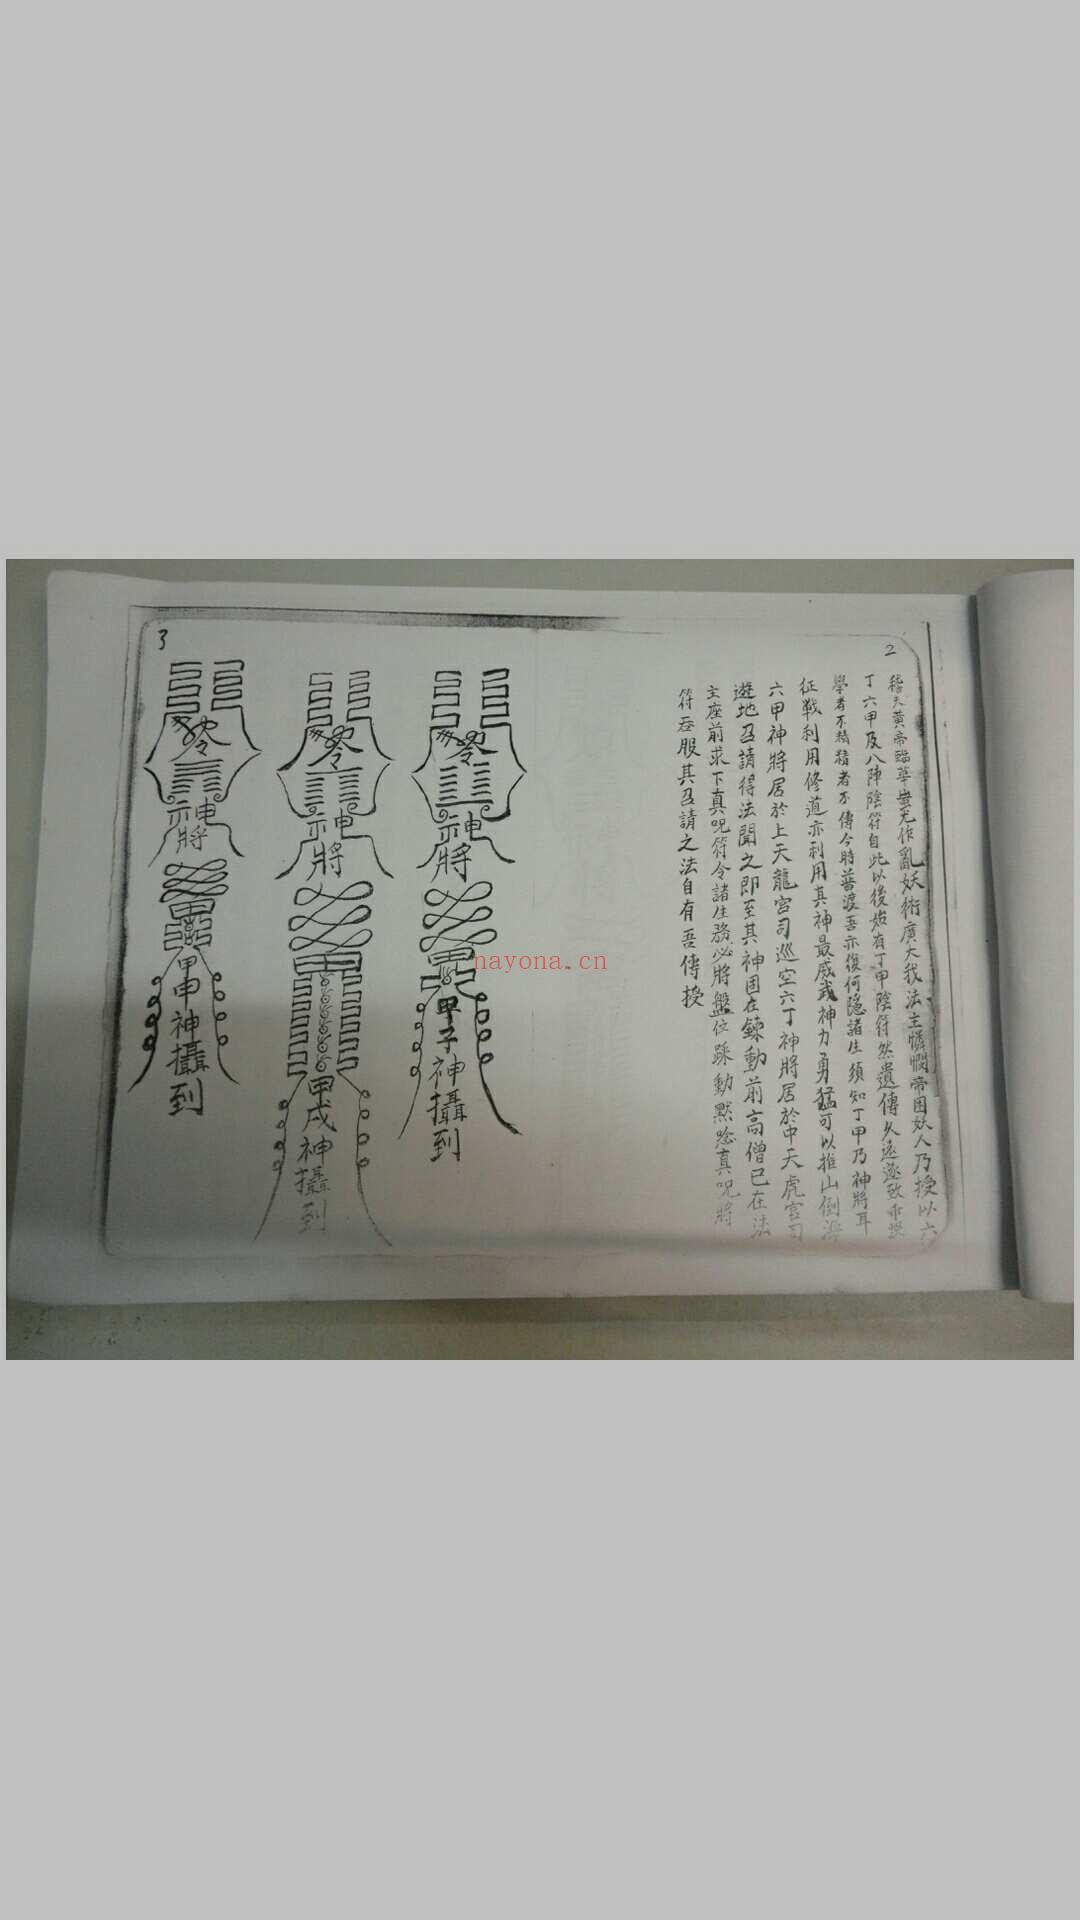 2
稽夫黃帝臨華蚩尤作亂妖術廣大我法主憐憫帝困妖人乃授以六
丁六甲及八陣陰符自此以後始有丁甲陰符然遺傳久遠遂致
學者不精精者不傳今時普渡吾亦復何隱諸生須知丁甲乃神將耳
征戰利用修道亦利用真神最威武神力勇猛可以推山倒海
六甲神將居於上天龍宮司巡空六丁神將居於中天虎宮司
遊地召請得法聞之即至其神固在鍊動前高僧已在法
主座前求下真咒符令諸生務必將盤位踩動默唸真咒將
符吞服其召請之法自有吾傳授
3
神將
甲子神攝到
神將
甲戌神攝到
神將
甲申神攝到
nayona.cn